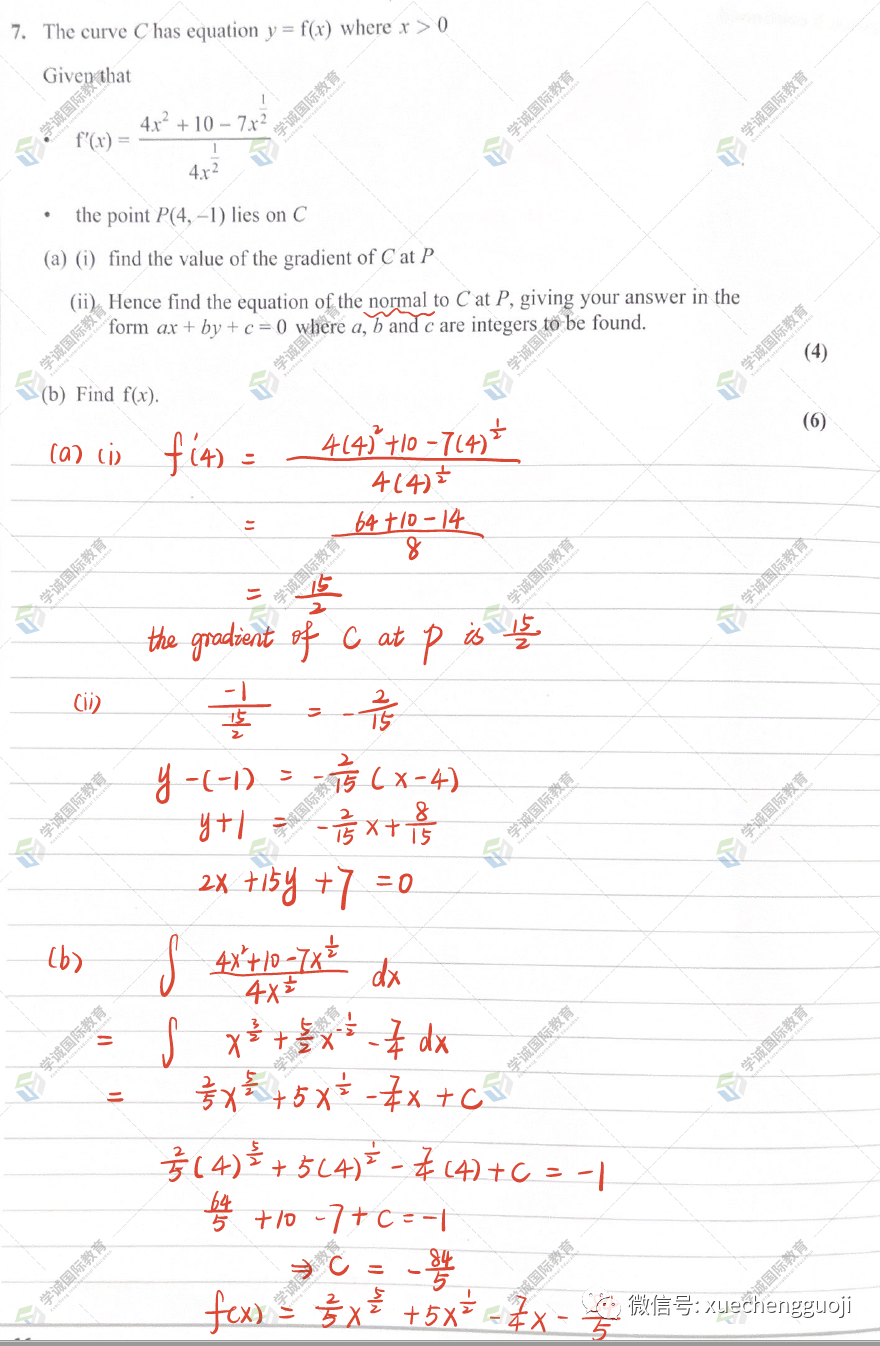 7. The curve C has equation y = f(x) where x > 0
Given that
• f′(x) = (4x² + 10 − 7x^(1/2)) / (4x^(1/2))
• the point P(4, −1) lies on C
(a) (i) find the value of the gradient of C at P
(ii) Hence find the equation of the normal to C at P, giving your answer in the
form ax + by + c = 0 where a, b and c are integers to be found.
(4)
(b) Find f(x).
(6)
(a) (i) f′(4) = (4(4)² + 10 − 7(4)^(1/2)) / (4(4)^(1/2))
= (64 + 10 − 14) / 8
= 15/2
the gradient of C at p is 15/2
(ii) −1 / (15/2) = −2/15
y − (−1) = −2/15 (x − 4)
y + 1 = −2/15 x + 8/15
2x + 15y + 7 = 0
(b) ∫ (4x² + 10 − 7x^(1/2)) / (4x^(1/2)) dx
= ∫ x^(3/2) + 5/2 x^(−1/2) − 7/4 dx
= 2/5 x^(5/2) + 5x^(1/2) − 7/4 x + C
2/5 (4)^(5/2) + 5(4)^(1/2) − 7/4 (4) + C = −1
64/5 + 10 − 7 + C = −1
⇒ C = −84/5
f(x) = 2/5 x^(5/2) + 5x^(1/2) − 7/4 x − /5
微信号: xuechengguoji
学诚国际教育